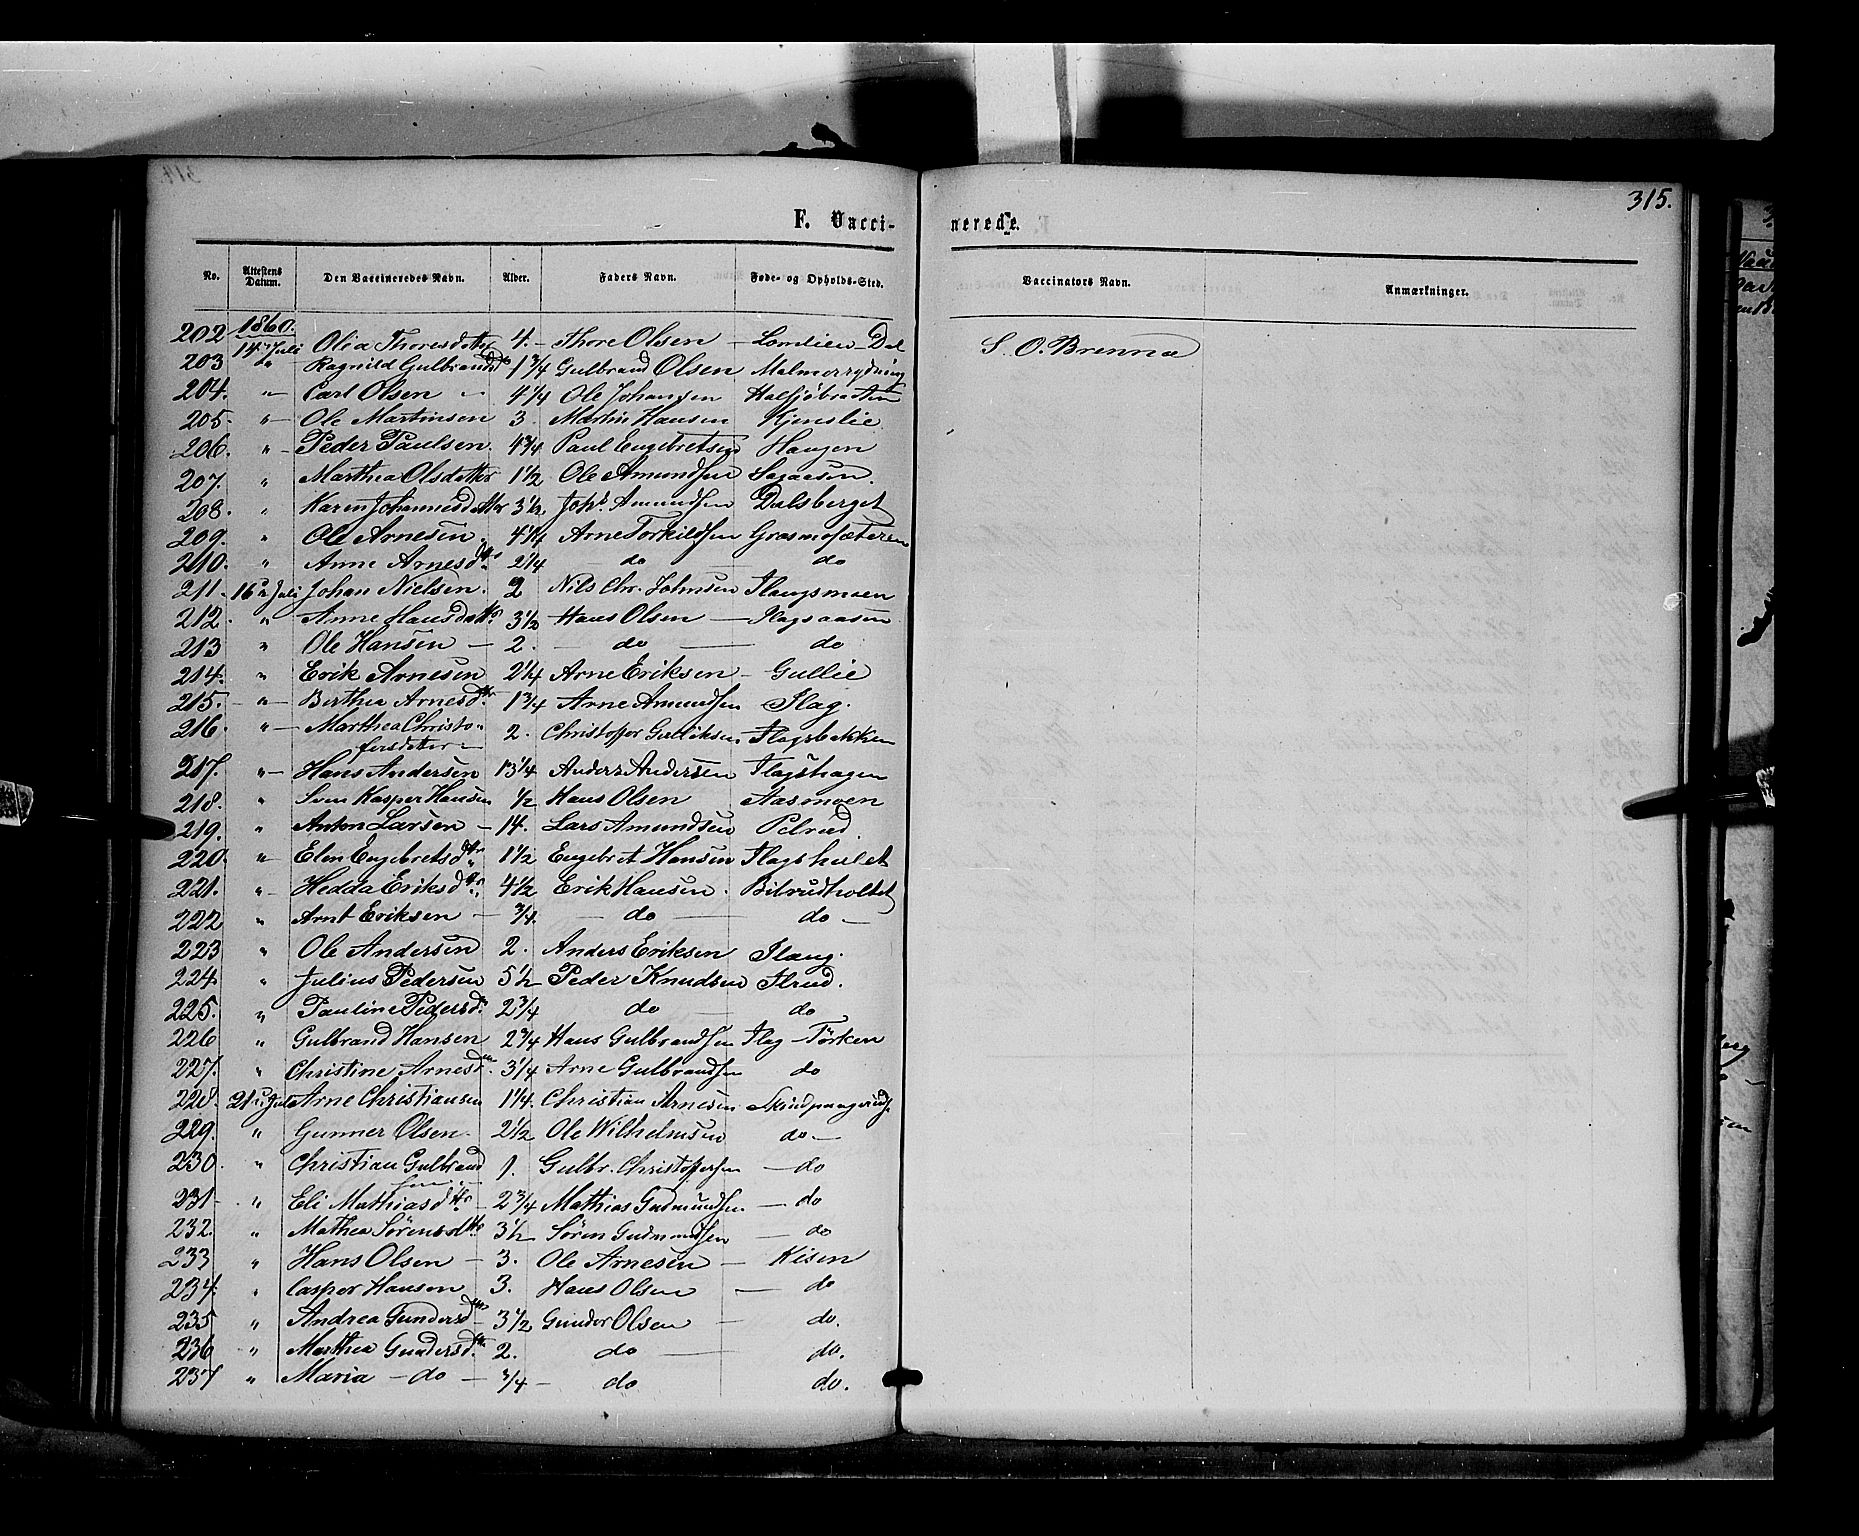 315.
F. Vacci- nerede.
No. Attestens Datum. Den Vaccineredes Navn. Alder. Faders Navn. Føde- og Opholds-Sted. Vaccinators Navn. Anmærkninger.
1860.
202 14 Juli Olia Thoresdatter 4. - Thore Olsen - Lomlien - Dal S. O. Brenna
203 " Ragnild Gulbrandsdtr 1 3/4 Gulbrand Olsen Malmerrydning
204. " Carl Olsen " 4 1/4 Ole Johansen
205. " Ole Martinsen 3. Martin Hansen Kjenslie
206. " Peder Paulsen. 4 3/4 Paul Engebretsen Haugen
207. " Marthea Olsdatter 1 1/2 Ole Amundsen Sagaasen
208. " Karen Johannesdatter 3 1/2 Johs. Amundsen Dalsberget
209. " Ole Arnesen. 4 1/4 Arne Torkildsen Grasmosæteren
210. " Anne Arnesdtr. 2 1/4 do do
211. 16 Juli Johan Nielsen. 2 Nils Chr. Johnsen Ilaugsmoen
212. " Anne Hansdattr 3 1/2 Hans Olsen — Ilagsaasen
213 " Ole Hansen — 2. — do — do
214. " Erik Arnesen 2 1/4 Arne Eriksen - Gullie
215. " Berthea Arnesdtr. 1 3/4 Arne Amundsen Ilag.
216. " Marthea Christo- 2. Christoffer Gulliksen Ilagsbakken
fersdatter
217. " Hans Andersen 13 1/4 Anders Andersen Ilagshagen
218. " Sven Kasper Hansen 1/2 Hans Olsen Aasmoen
219. " Anton Larsen — 14. Lars Amundsen Pelrud.
220. " Elen Engebretsdtr. 1 1/2 Engebret Hansen Ilagshulet
221. " Hedda Eriksdtr. 4 1/2 Erik Hansen. Bilrudholtet
222 " Arnt Eriksen — 3/4. — do — do —
223 " Ole Andersen 2. Anders Eriksen Ilaug.
224. " Julius Pedersen 5 1/2 Peder Knudsen Ilrud.
225. " Pauline Pedersd. 2 3/4 do do
226 " Gulbrand Hansen 2 3/4 Hans Gulbrandsen Ilag - Törken
227. " Christine Arnesd. 3 1/4 Arne Gulbrandsen do
228. 21 Juli Arne Christiansen 1 1/4. Christian Arnesen
229. " Gunner Olsen. 2 1/2 Ole Wilhelmsen do —
230. " Christian Gulbrand 1. Gulbr. Christophersen — do
sen
231 - " Eli Mathiasdtr — 2 3/4 Mathias Gudmundsen — do
232. " Mathea Sörensdtr. 3 1/2 Sören Gudmundsen — do
233 " Hans Olsen — 3. Ole Arnesen — Kisen
234. " Casper Hansen 3. Hans Olsen — do
235 " Andrea Gundersd — 3 1/2 Gunder Olsen — do.
236 " Marthea Gundersd. 2. do — do.
237 " Maria — do — 3/4 — do do.